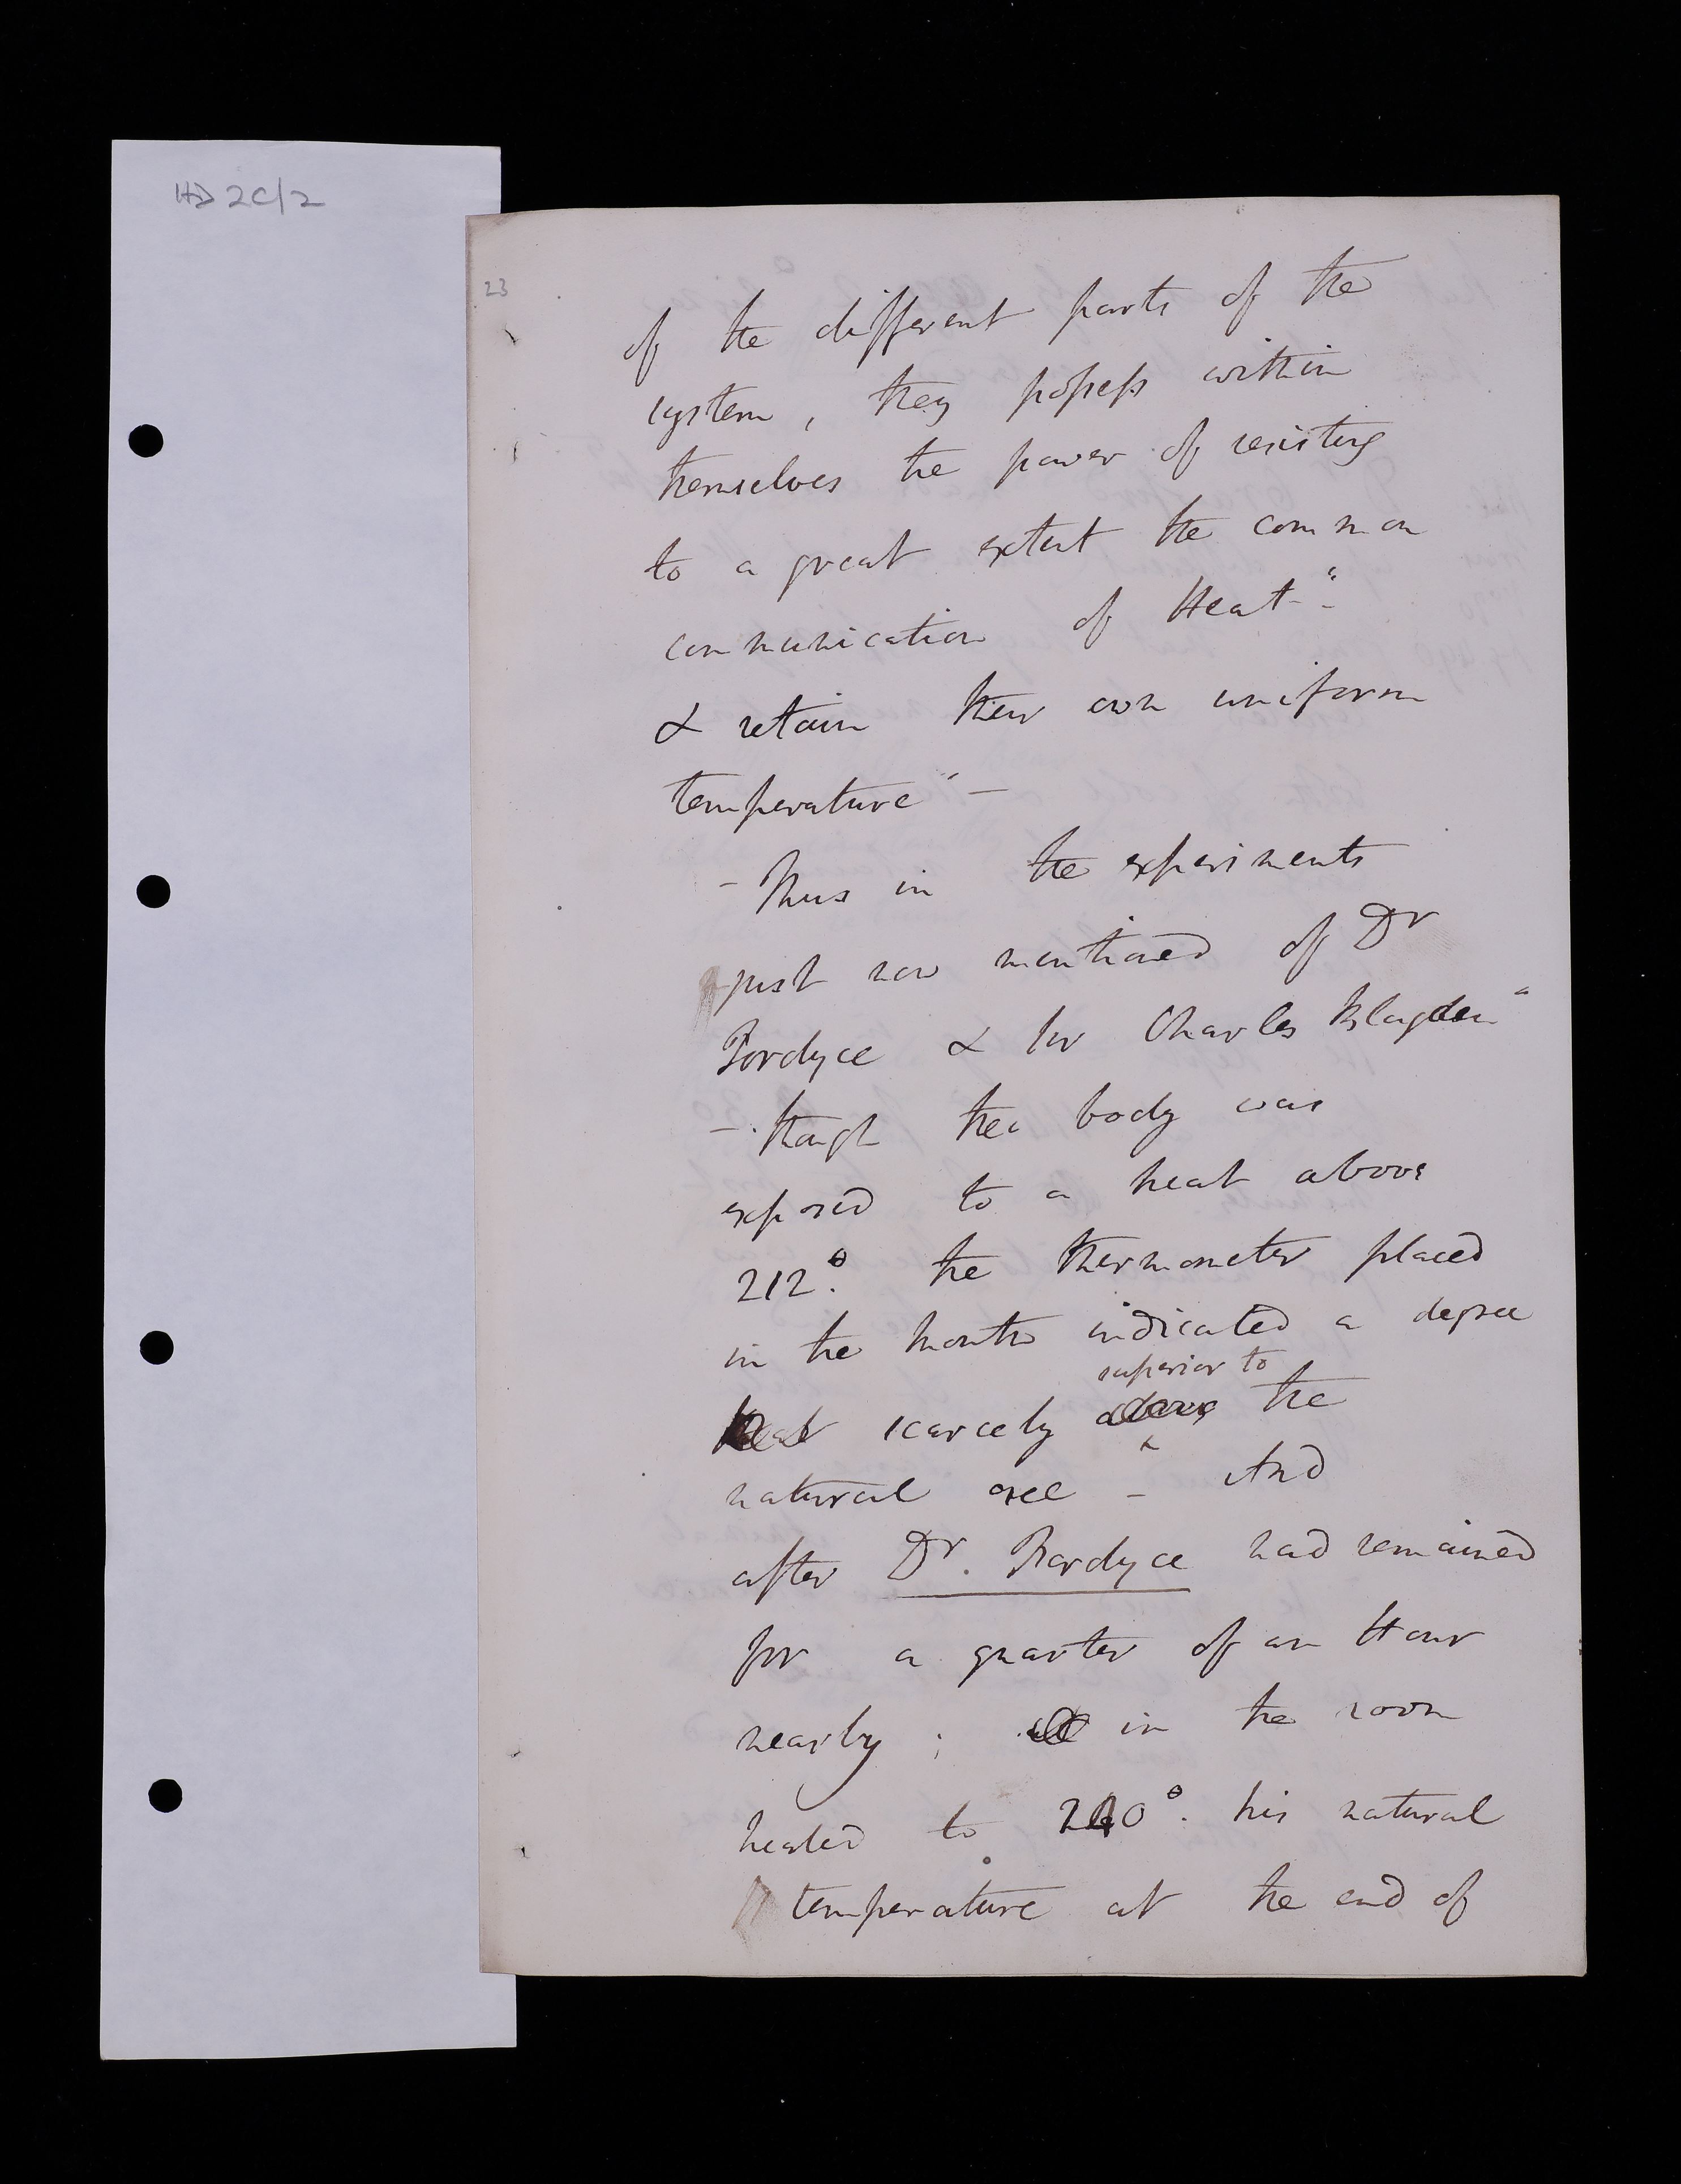 HD 2C/2
23
of the different parts of the
system, they possess within
themselves the power of resisting
to a great extent the common
communication of Heat -"-
& retain their own uniform
temperature" -
- Thus in the experiments
just now mentioned of Dr
Fordyce & Sir Charles Blagden"
- though the body was
exposed to a heat above
212°. the thermometer placed
in the mouth indicated a degree
superior to
scarcely above the
natural one - And
after Dr. Fordyce had remained
for a quarter of an Hour
nearly; in the room
heated to 240°. his natural
temperature at the end of